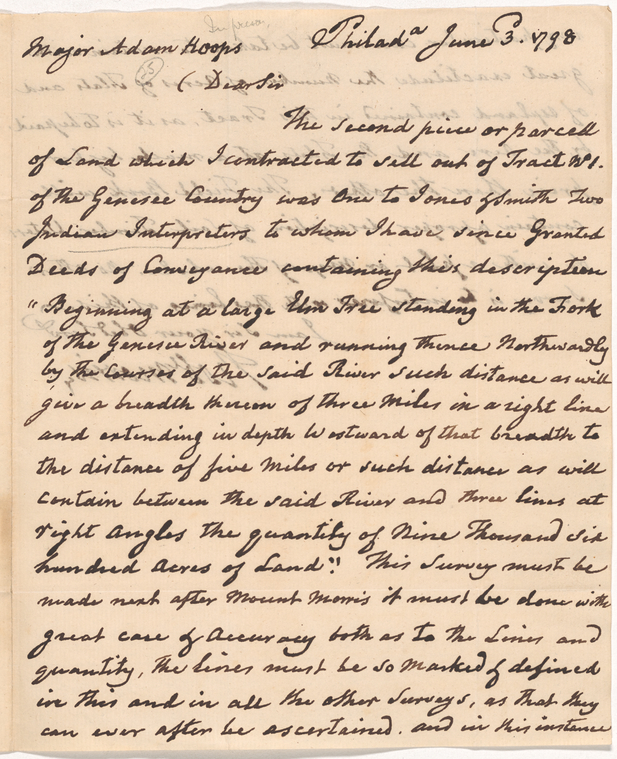 Major Adam Hoops Philad.a June 3. 1798
55
Dear Sir
The second piece or parcell
of Land which I contracted to sell out of Tract No1.
of the Genesee Country was One to Jones & Smith Two
Indian Interpreters to whom I have since Granted
Deeds of Conveyance containing this description
"Beginning at a large Elm Tree standing in the Fork
of the Genesee River and running thence Northwardly
by the courses of the said River such distance as will
give a breadth thereon of three Miles in a right line
and extending in depth Westward of that breadth to
the distance of five Miles or such distance as will
contain between the said River and three lines at
right Angles the quantity of Nine Thousand six
hundred Acres of Land". This Survey must be
made next after Mount Morris it must be done with
great care & Accuracy both as to the Lines and
quantity, the lines must be so marked & defined
in this and in all the other Surveys, as that they
can ever after be ascertained. and in this instance